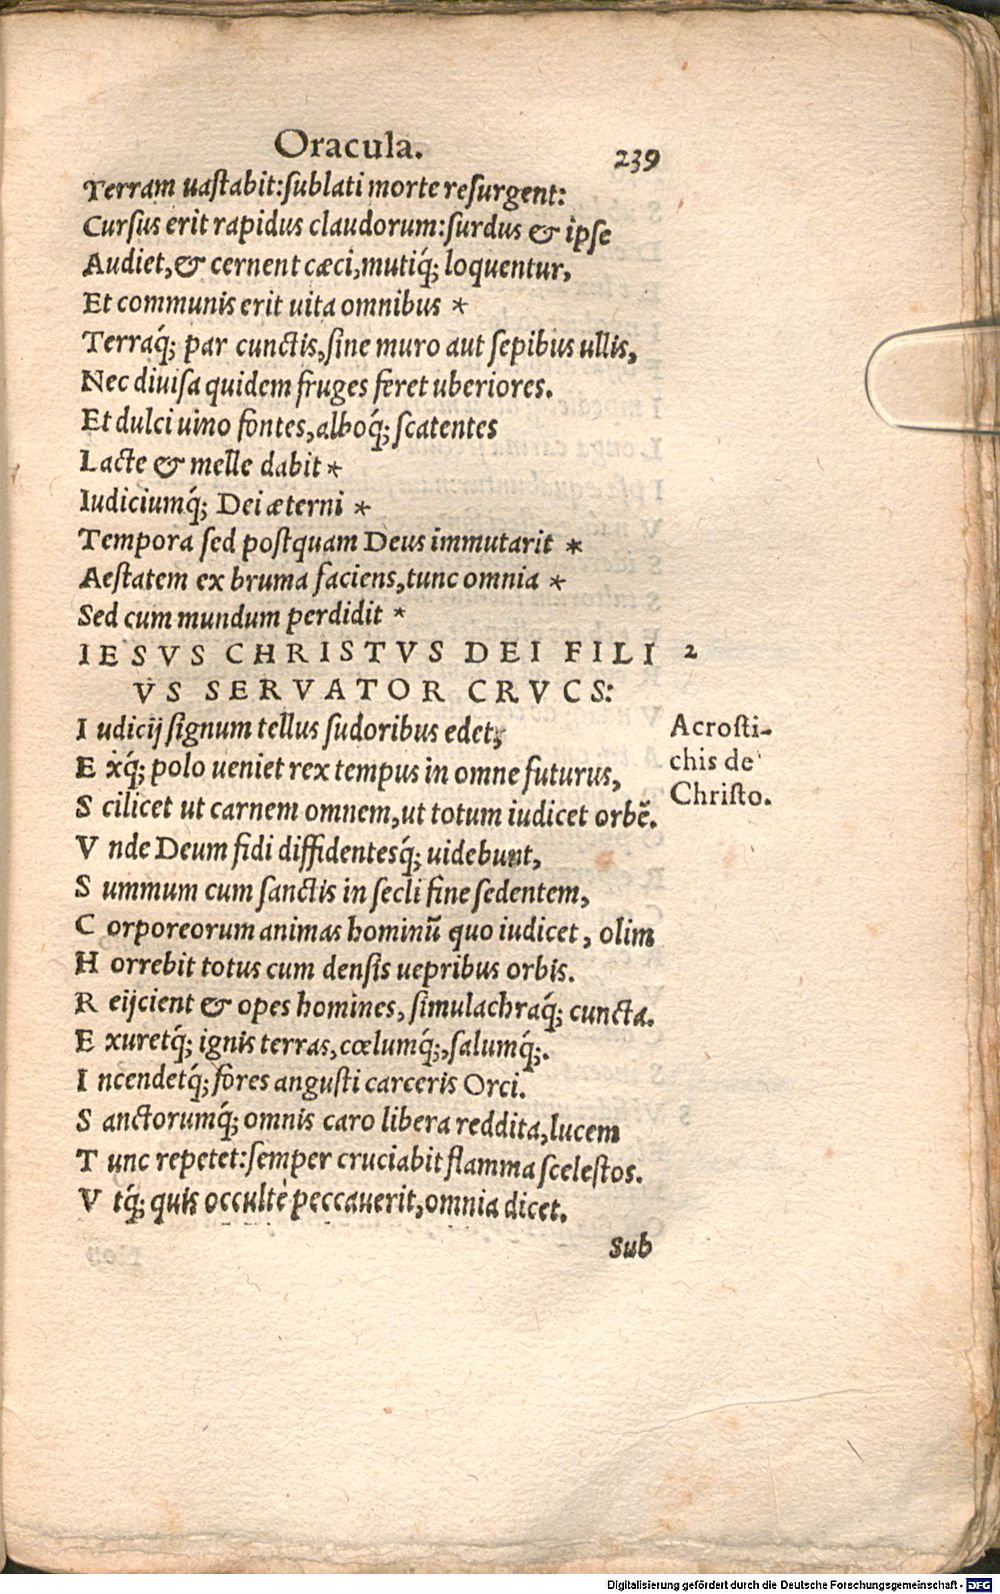 Oracula. 239
Terram uaſtabit:ſublati morte reſurgent:
Curſus erit rapidus claudorum:ſurdus & ipſe
Audiet,& cernent cæci,mutiq́; loquentur,
Et communis erit uita omnibus *
Terraq́; par cunctis,ſine muro aut ſepibus ullis,
Nec diuiſa quidem fruges feret uberiores.
Et dulci uino fontes,alboq́; ſcatentes
Lacte & melle dabit *
Iudiciumq́; Dei æterni *
Tempora ſed poſtquam Deus immutarit *
Aeſtatem ex bruma faciens,tunc omnia *
Sed cum mundum perdidit *
IESVS CHRISTVS DEI FILI 2
VS SERVATOR CRVCS:
I udicij ſignum tellus ſudoribus edet;
E xq́; polo ueniet rex tempus in omne futurus,
S cilicet ut carnem omnem,ut totum iudicet orbẽ.
V nde Deum fidi diffidentesq́; uidebunt,
S ummum cum ſanctis in ſecli fine ſedentem,
C orporeorum animas hominũ quo iudicet, olim
H orrebit totus cum denſis uepribus orbis.
R eijcient & opes homines, ſimulachraq́; cuncta.
E xuretq́; ignis terras,cœlumq́;,ſalumq́;.
I ncendetq́; fores anguſti carceris Orci.
S anctorumq́; omnis caro libera reddita,lucem
T unc repetet:ſemper cruciabit flamma ſceleſtos.
V tq́; quis occultè peccauerit,omnia dicet.
Sub
Acroſti-
chis de
Chriſto.
Digitalisierung gefördert durch die Deutsche Forschungsgemeinschaft - DFG